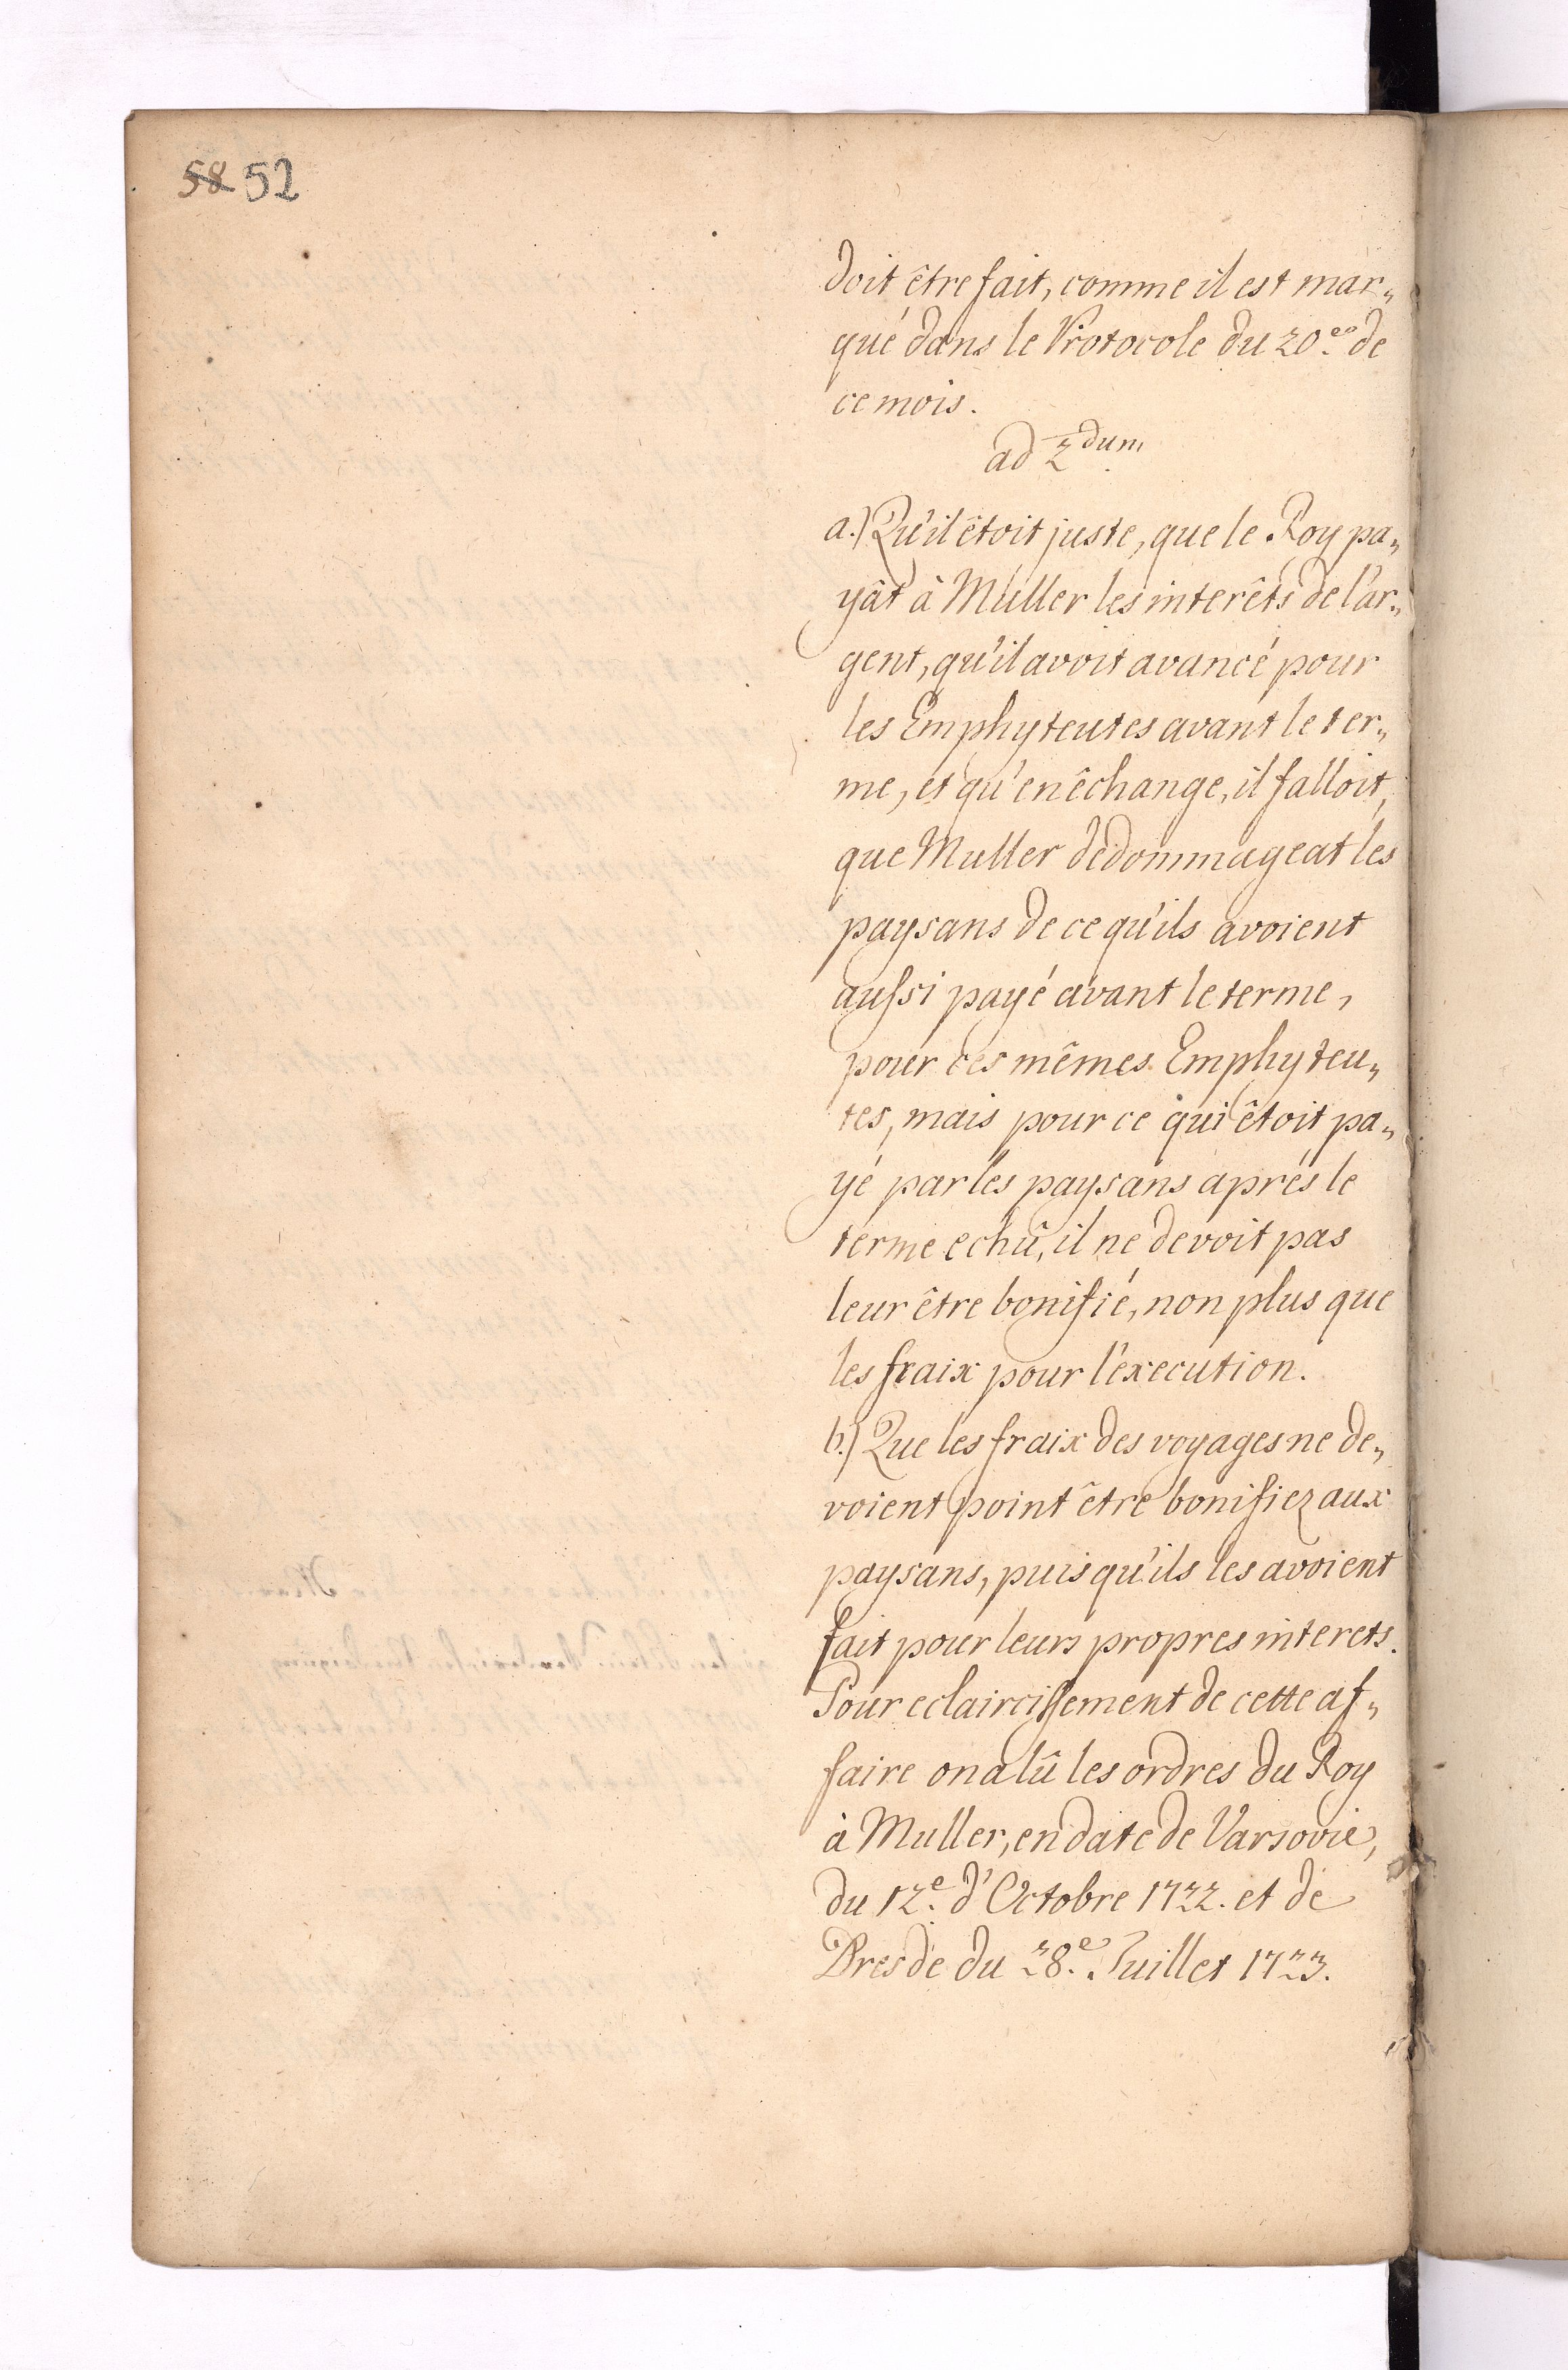 58 52
doit être fait, comme il est mar„
qué dans le Protocole du 20.e de
ce mois.
ad 2.dum
a.) Qu'il êtoit juste, que le Roy pa„
yât â Muller les interêts de l'ar„
gent, qu'il avoit avancé pour
les Emphyteutes avant le ter„
me, et qu'en êchange, il falloit,
que Muller dédommageat les
paysans de ce qu'ils avoient
aussi payé avant le terme,
pour ces mêmes Emphyteu„
tes, mais pour ce qui êtoit pa„
yé par les paysans aprés le
terme echû, il ne devoit pas
leur être bonifié, non plus que
les fraix pour l'execution.
b.) Que les fraix des voyages ne de„
voient point être bonifiez aux
paysans, puisqu'ils les avoient
fait pour leurs propres interets.
Pour eclaircissement de cette af„
faire on a lû les ordres du Roy
à Muller, en date de Varsovie,
du 12.e d'Octobre 1722. et de
Dresde du 28.e Juillet 1723.